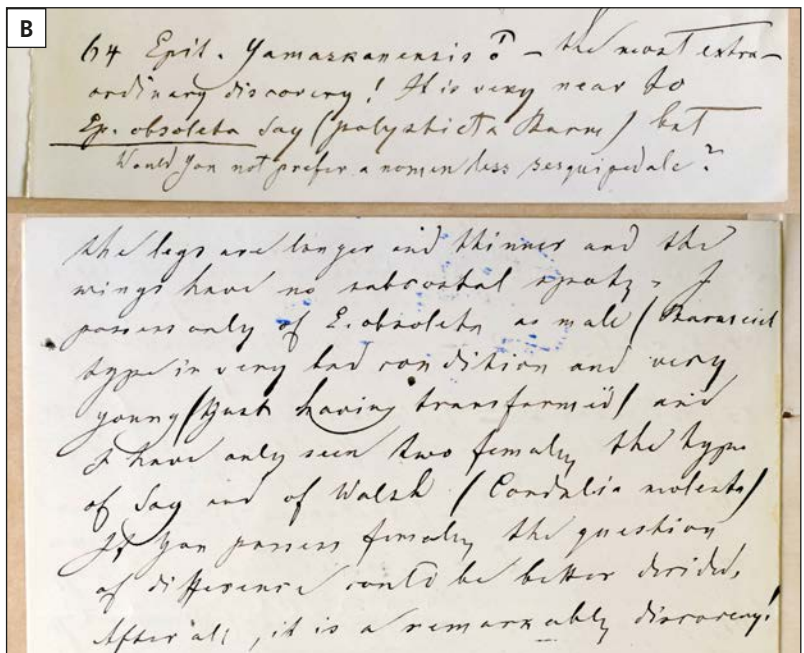 B
64 Epit. Yamaskanensis ♂ – the most extra-
ordinary discovery! It is very near to
Ep. obsoleta Say (polysticta Burm) but
Would you not prefer a nomen less sesquipedale?
the legs are longer and thinner and the
wings have no subcostal spots. I
possess only of E. obsoleta as male (Burmeist
type in very bad condition and very
young (just having transformed) and
I have only seen two females, the type
of Say and of Walsh (Cordulia molesta)
If you possess females, the question
of difference could be better decided.
After all, it is a remarkably discovery!